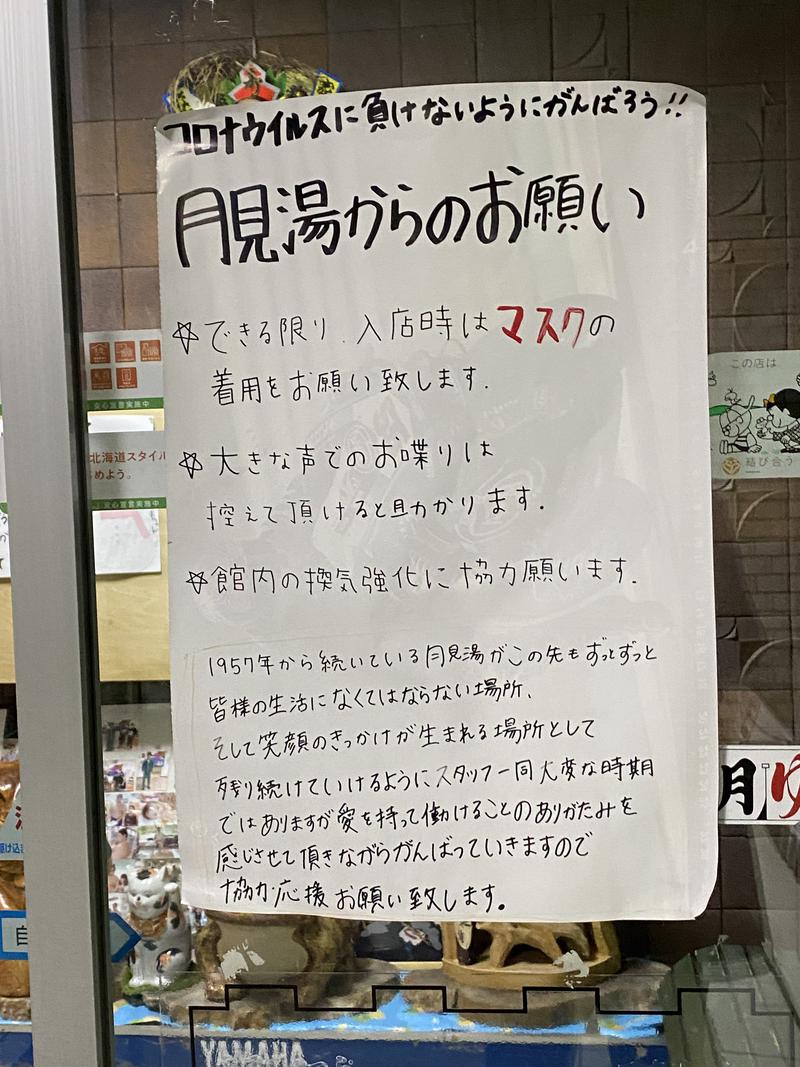 コロナウイルスに負けないようにがんばろう!!
月見湯からのお願い
☆できる限り、入店時はマスクの
着用をお願い致します.
☆大きな声でのお喋りは
控えて頂けると助かります.
☆館内の換気強化に協力願います.
1957年から続いている月見湯がこの先もずっとずっと
皆様の生活になくてはならない場所、
そして笑顔のきっかけが生まれる場所として
残り続けていけるようにスタッフ一同大変な時期
ではありますが愛を持って働けることのありがたみを
感じさせて頂きながらがんばっていきますので
協力・応援お願い致します。
安心宣言実施中
北海道スタイル
めよう。
安心宣言実施中
この店は
結び合う
月
ゆ
自
YAMAHA